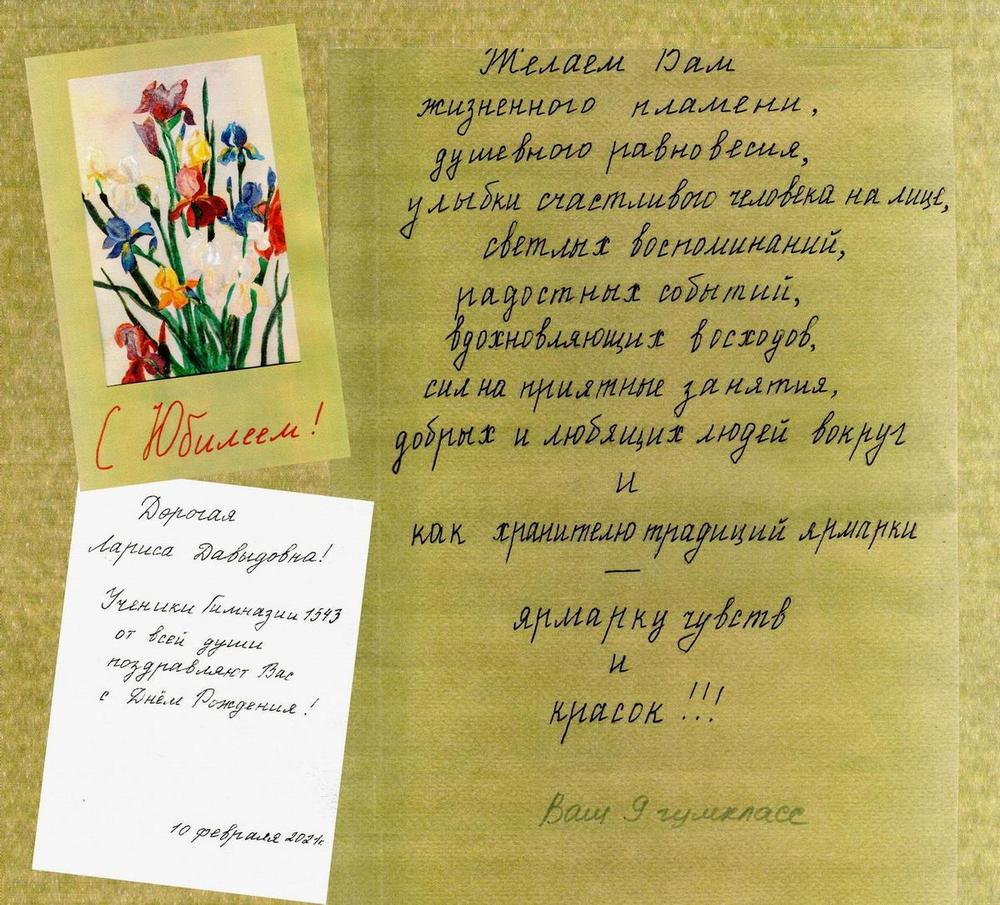 С Юбилеем!
Дорогая
Лариса Давыдовна!
Ученики Гимназии 1543
от всей души
поздравляют Вас
с Днём Рождения!
10 февраля 2021г.
Желаем Вам
жизненного пламени,
душевного равновесия,
улыбки счастливого человека на лице,
светлых воспоминаний,
радостных событий,
вдохновляющих восходов,
сил на приятные занятия,
добрых и любящих людей вокруг
и
как хранителю традиций ярмарки
—
ярмарку чувств
и
красок!!!
Ваш 9 гумкласс